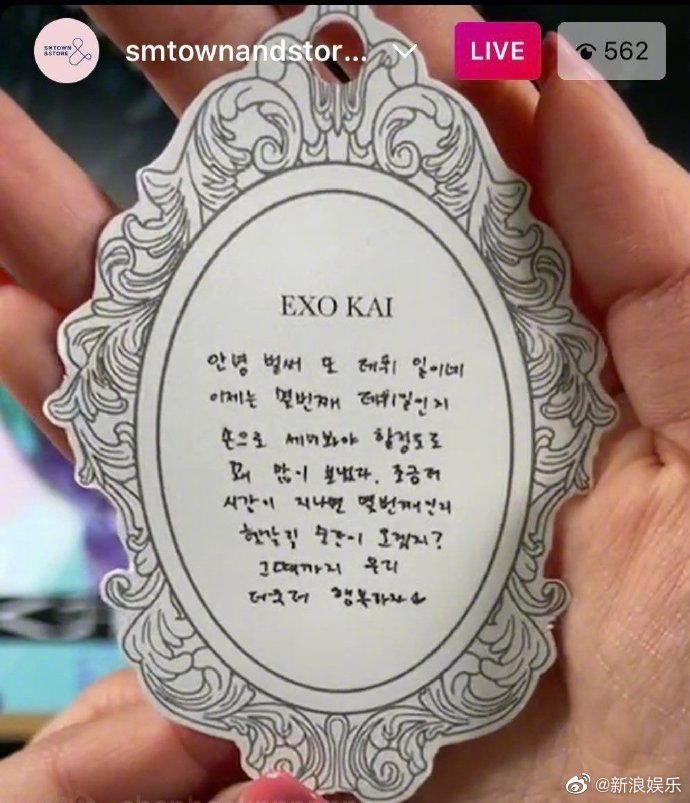 SMTOWN
&STORE
smtownandstor...
LIVE
562
EXO KAI
안녕 벌써 또 데뷔 일이네
이제는 몇번째 데뷔일인지
손으로 세어봐야 할정도로
꽤 많이 보냈다. 조금더
시간이 지나면 몇번째인지
헷갈릴 순간이 오겠지?
그때까지 우리
더욱더 행복하자
@新浪娱乐